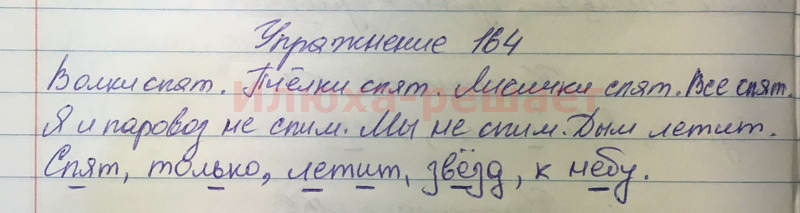 Упражнение 164
Волки спят. Пчёлки спят. Лисички спят. Все спят.
илюха-решает
Я и паровоз не спим. Мы не спим. Дым летит.
Спят, только, летит, звёзд, к небу.